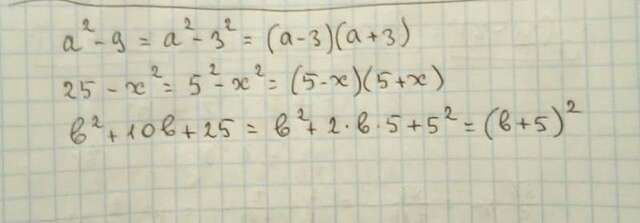 a² - 9 = a² - 3² = (a - 3)(a + 3)
25 - x² = 5² - x² = (5 - x)(5 + x)
в² + 10в + 25 = в² + 2·в·5 + 5² = (в + 5)²